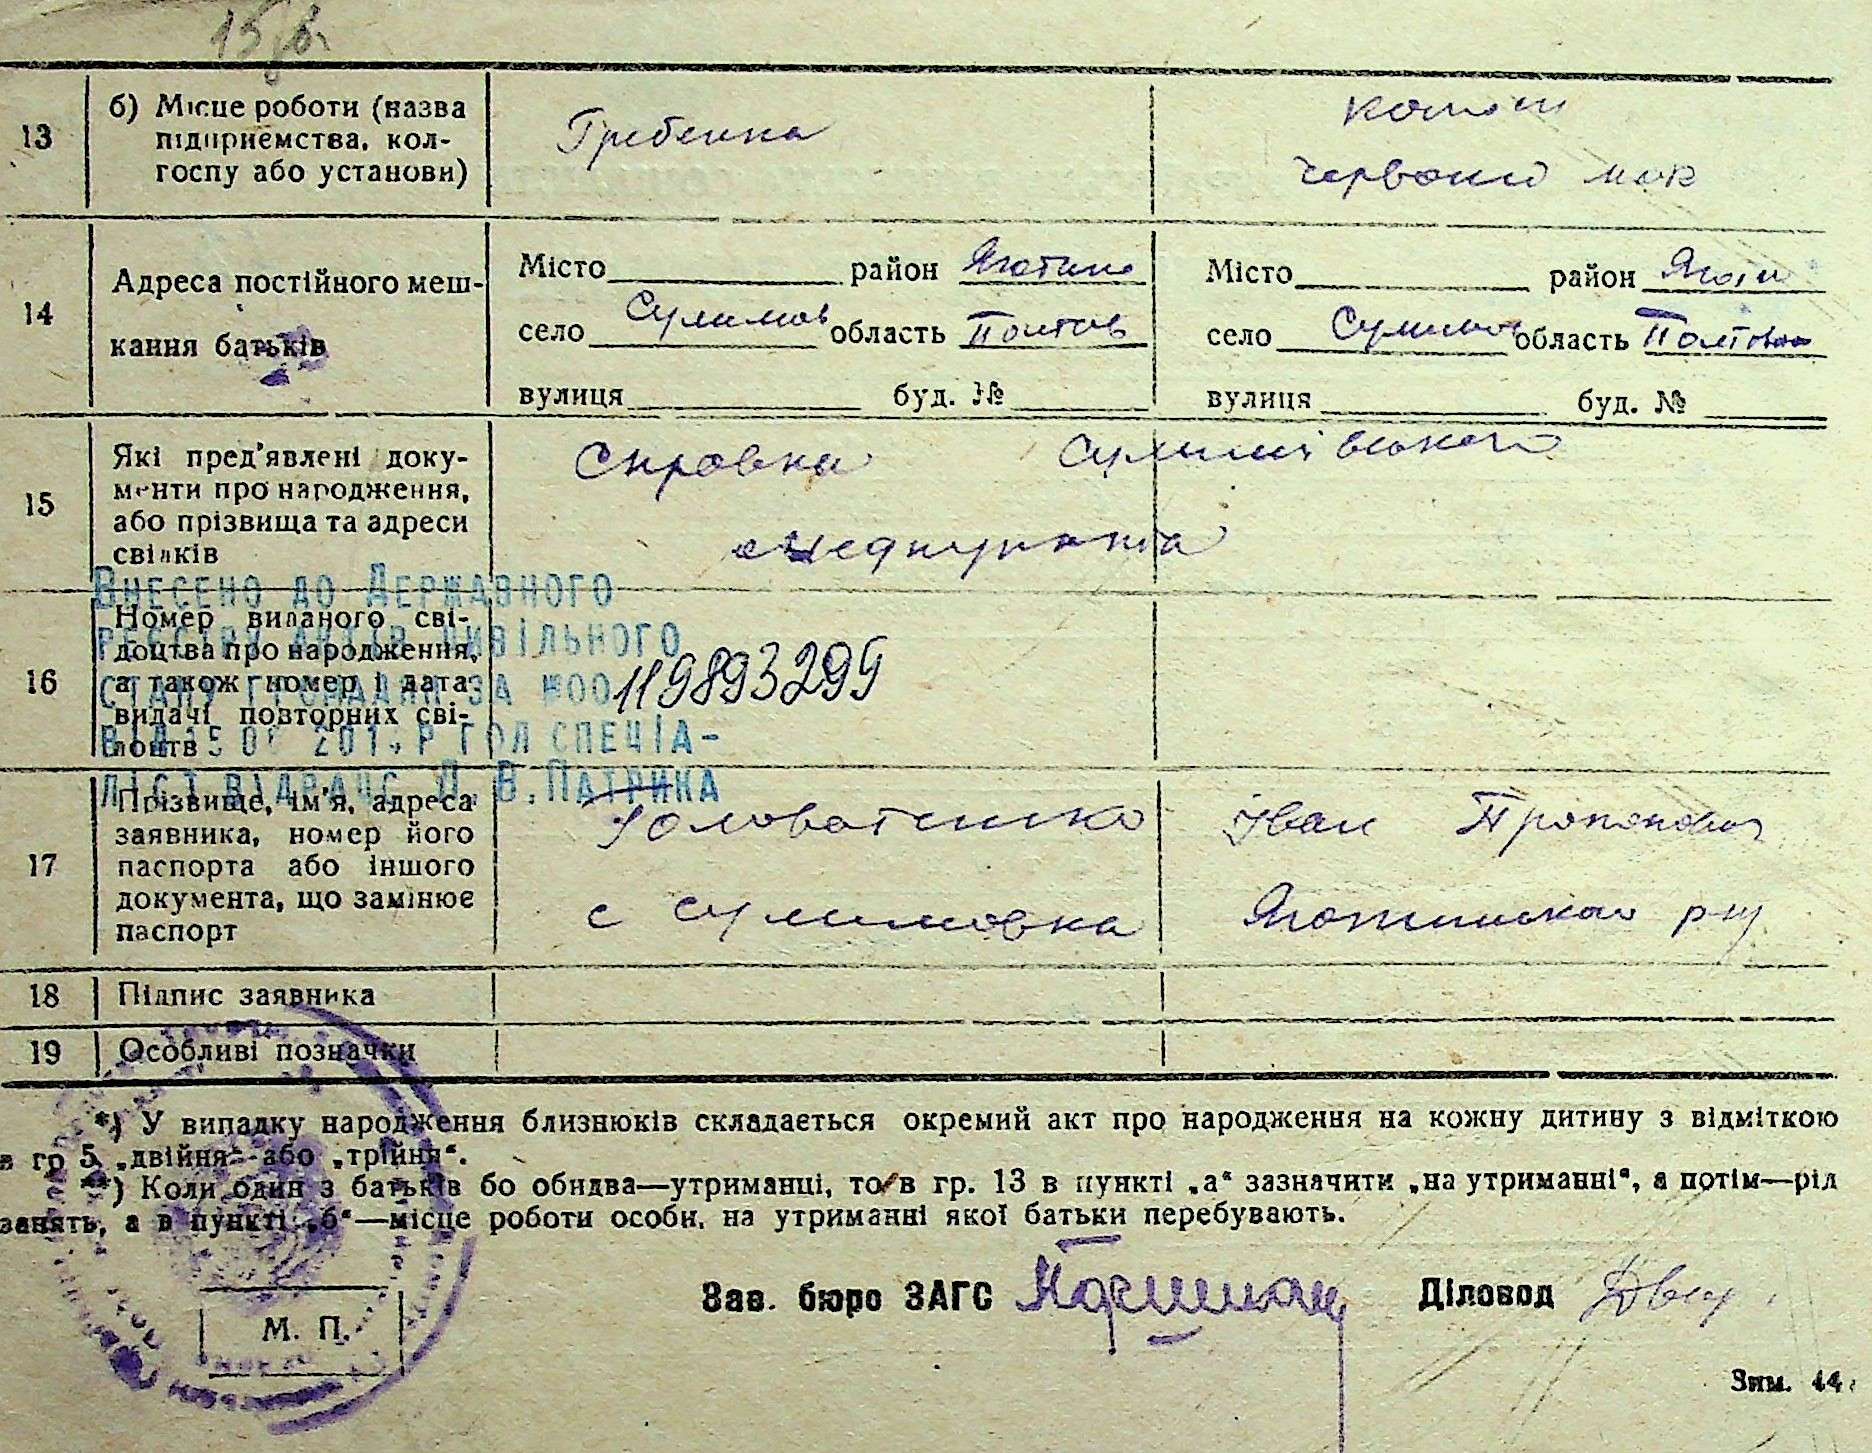 13
б) Місце роботи (назва
підприємства, кол-
госпу або установи)
Гребенка
червоний мак
14
Адреса постійного меш-
кання батьків
Місто район Яготинс
село Сулимов область Полтов
вулиця буд. №
Місто район Ягот
село Сулимов область Полтовск
вулиця буд. №
15
Які пред'явлені доку-
менти про народження,
або прізвища та адреси
свідків
Справка Сулимівського
медпункта
Внесено до Державного
реєстру актів цивільного
стану громадян за №00119893299
16
Номер виданого сві-
доцтва про народження,
а також номер і дата
видачі повторних сві-
доцтв
гол спеціа-
ліст відрацс Л. В. Патрика
17
Прізвище, ім'я, адреса
заявника, номер його
паспорта або іншого
документа, що замінює
паспорт
Головатенко Іван Прокопович
с Сулимовка Яготинского р-ну
18
Підпис заявника
19
Особливі позначки
*) У випадку народження близнюків складається окремий акт про народження на кожну дитину з відміткою
в гр 5 „двійня“ або „трійня“.
**) Коли один з батьків бо обидва—утриманці, то в гр. 13 в пункті „а“ зазначити „на утриманні“, а потім—рід
занять, а в пункті „б“—місце роботи особи, на утриманні якої батьки перебувають.
Зав. бюро ЗАГС Діловод
М. П.
Зим. 44